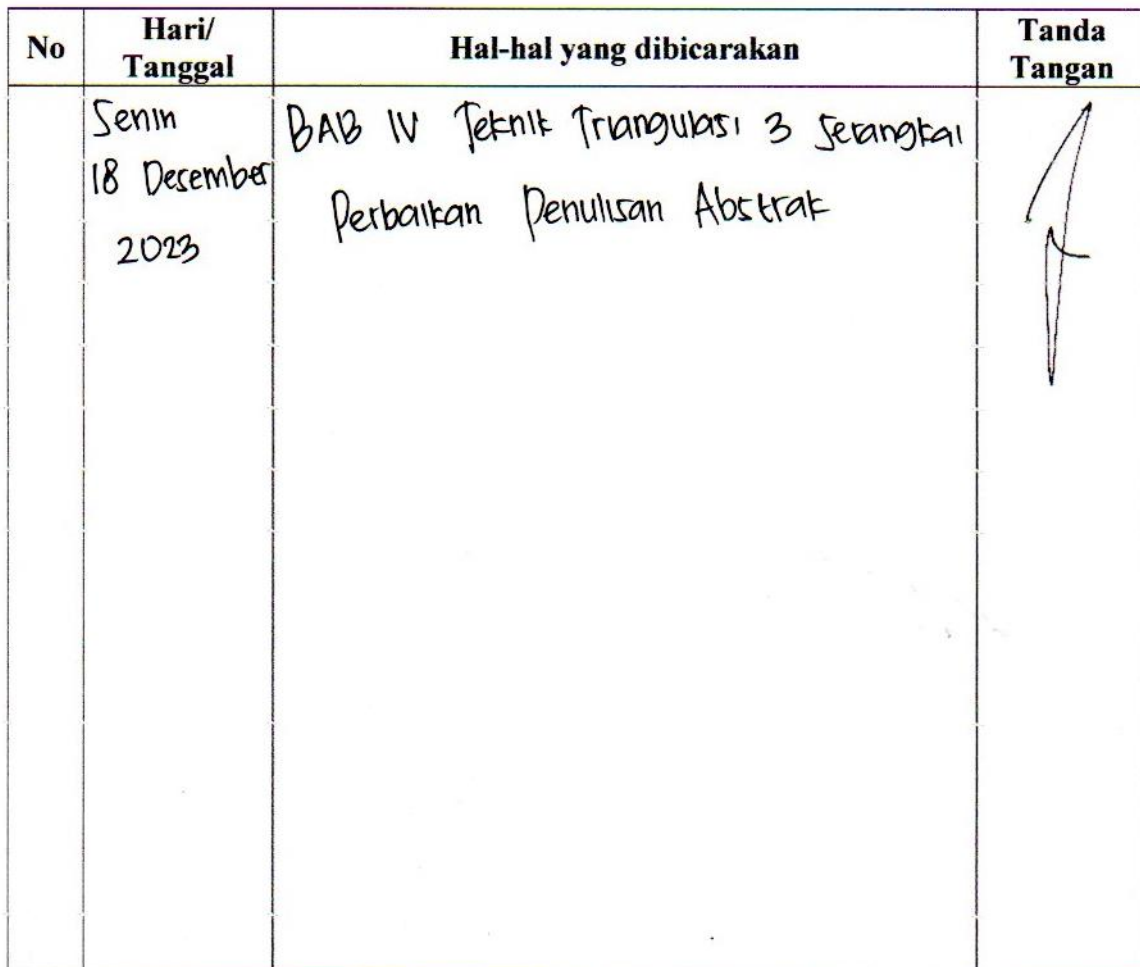 No
Hari/
Tanggal
Hal-hal yang dibicarakan
Tanda
Tangan
Senin
18 Desember
2023
BAB IV Teknik Triangulasi 3 Serangkai
Perbaikan Penulisan Abstrak